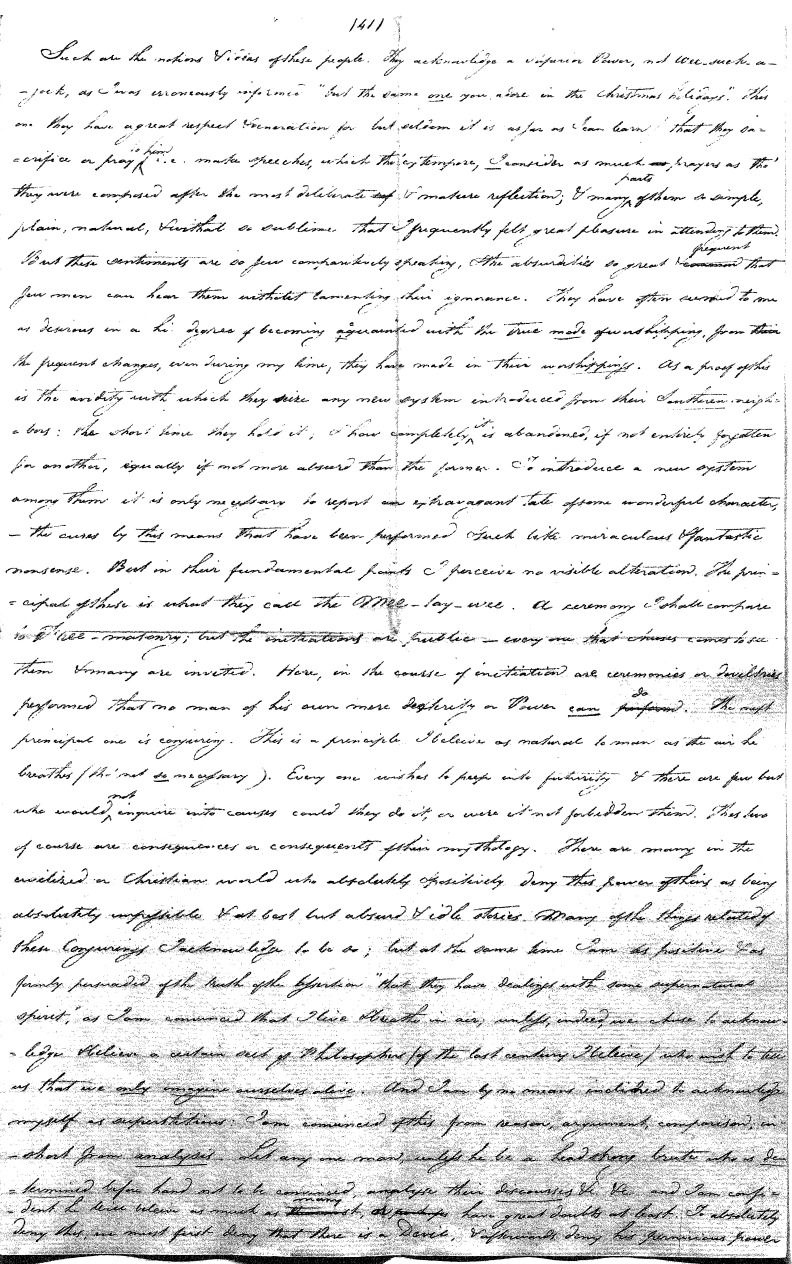 1411
Such are the notions & ideas of these people. They acknowledge a superior Power, not Wee-suck-a-
-jock, as I was erroneously informed "but the same one you adore in the Christmas holidays". This
one they have a great respect & veneration for but seldom it is as far as I can learn that they sa-
-crifice or pray to him, i.e. make speeches, which tho' extempore, I consider as much prayers as tho'
they were composed after the most deliberate & mature reflection; & many parts of them so simple,
plain, natural, & withal so sublime that I frequently felt great pleasure in attending to them.
But these sentiments are so few comparitively speaking, & the absurdities so great & common frequent that
few men can hear them without lamenting their ignorance. They have often seemed to me
as desirous in a hi: degree of becoming acquainted with the true mode of worshipping, from
the frequent changes, even during my time, they have made in their worshippings. As a proof of this
is the avidity with which they seize any new system introduced from their Southern neigh-
-bors: the short time they hold it, & how completely it is abandoned, if not entirely forgotten
for another, equally if not more absurd than the former. To introduce a new system
among them it is only necessary to report an extravagant tale of some wonderful character,
- the cures by this means that have been performed & such like miraculous & fantastic
nonsense. But in their fundamental points I perceive no visible alteration. The prin-
-cipal of these is what they call the Mee-tay-wee. A ceremony I shall compare
to Free-masonry; but the initiations are public - every one that chuses comes to see
them & many are invited. Here, in the course of initiation are ceremonies or deviltries
performed that no man of his own mere dexterity or Power can perform do. The next
principal one is conjuring. This is a principle I beleive as natural to man as the air he
breathes (tho' not so necessary). Every one wishes to peep into futurity & there are few but
who would not enquire into causes could they do it, or were it not forbidden them. These two
of course are consequences or consequents of their mythology. There are many in the
civilized or Christian world who absolutely & positively deny this power of theirs as being
absolutely impossible & at best but absurd & idle stories. Many of the things related of
these Conjurings I acknowledge to be so; but at the same time I am as positive & as
firmly persuaded of the truth of the assertion "that they have dealings with some supernatural
spirit," as I am convinced that I live & breathe in air; unless, indeed, we chuse to acknow-
-ledge & beleive a certain sect of Philosophers (of the last century I beleive) who wish to tell
us that we only imagine ourselves alive. And I am by no means inclined to acknowledge
myself as superstitious: I am convinced of this from reason, argument, comparison, in
-short from analysis. Let any one man, unless he be a headstrong brute who is de-
-termined before hand not to be convinced, analyse their discourses &c &c, and I am confi-
-dent he will beleive as much as many, have great doubts at least. To absolutely
deny this, we must first deny that there is a Devil, & afterwards deny his pernicious power